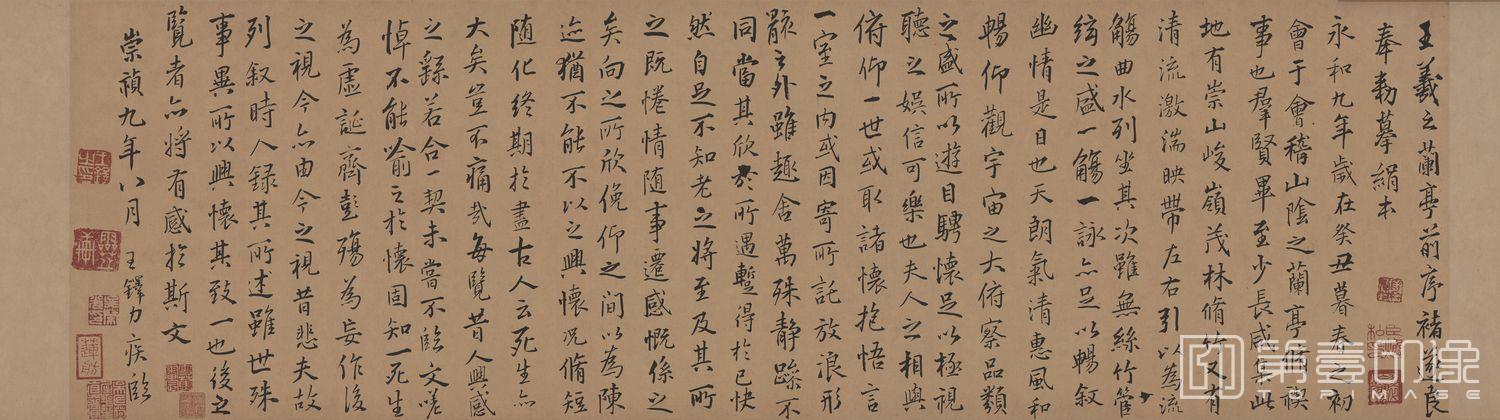 王羲之蘭亭前序褚遂良
奉勑摹絹本
永和九年歲在癸丑暮春之初
會于會稽山陰之蘭亭脩禊
事也羣賢畢至少長咸集此
地有崇山峻嶺茂林脩竹又有
清流激湍映帶左右引以為流
觴曲水列坐其次雖無絲竹管
絃之盛一觴一詠亦足以暢敘
幽情是日也天朗氣清惠風和
暢仰觀宇宙之大俯察品類
之盛所以遊目騁懷足以極視
聽之娛信可樂也夫人之相與
俯仰一世或取諸懷抱悟言
一室之內或因寄所託放浪形
骸之外雖趣舍萬殊靜躁不
同當其欣於所遇暫得於己快
然自足不知老之將至及其所
之既惓情隨事遷感慨係之
矣向之所欣俛仰之間以為陳
迹猶不能不以之興懷況脩短
随化終期於盡古人云死生亦
大矣豈不痛哉每覽昔人興感
之繇若合一契未嘗不臨文嗟
悼不能喻之於懷固知一死生
為虛誕齊彭殤為妄作後
之視今亦由今之視昔悲夫故
列叙時人録其所述雖世殊
事異所以興懷其致一也後之
覽者亦將有感於斯文
崇禎九年八月
王鐸力疾臨
第壹印象
TOP IMAGE